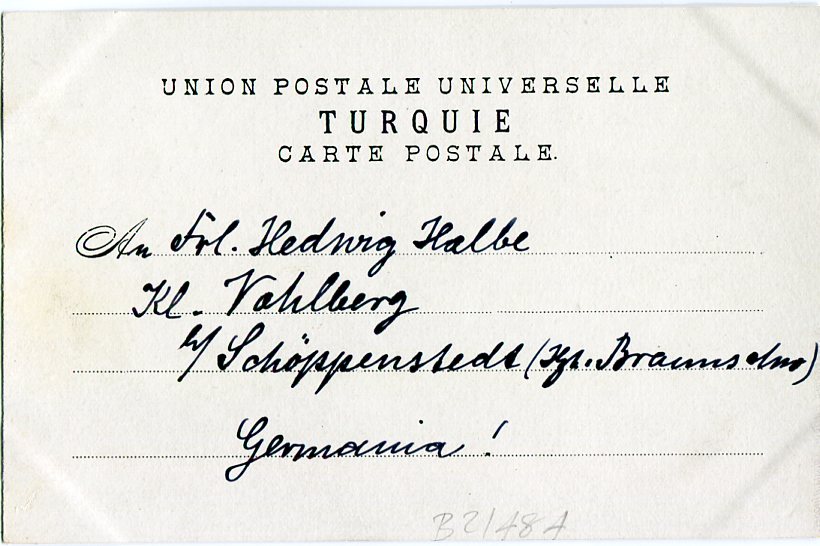 UNION POSTALE UNIVERSELLE
TURQUIE
CARTE POSTALE.
An Frl. Hedwig Halbe
Kl. Vahlberg
b/ Schöppenstedt (Hzt. Braunschw)
Germania!
B21484